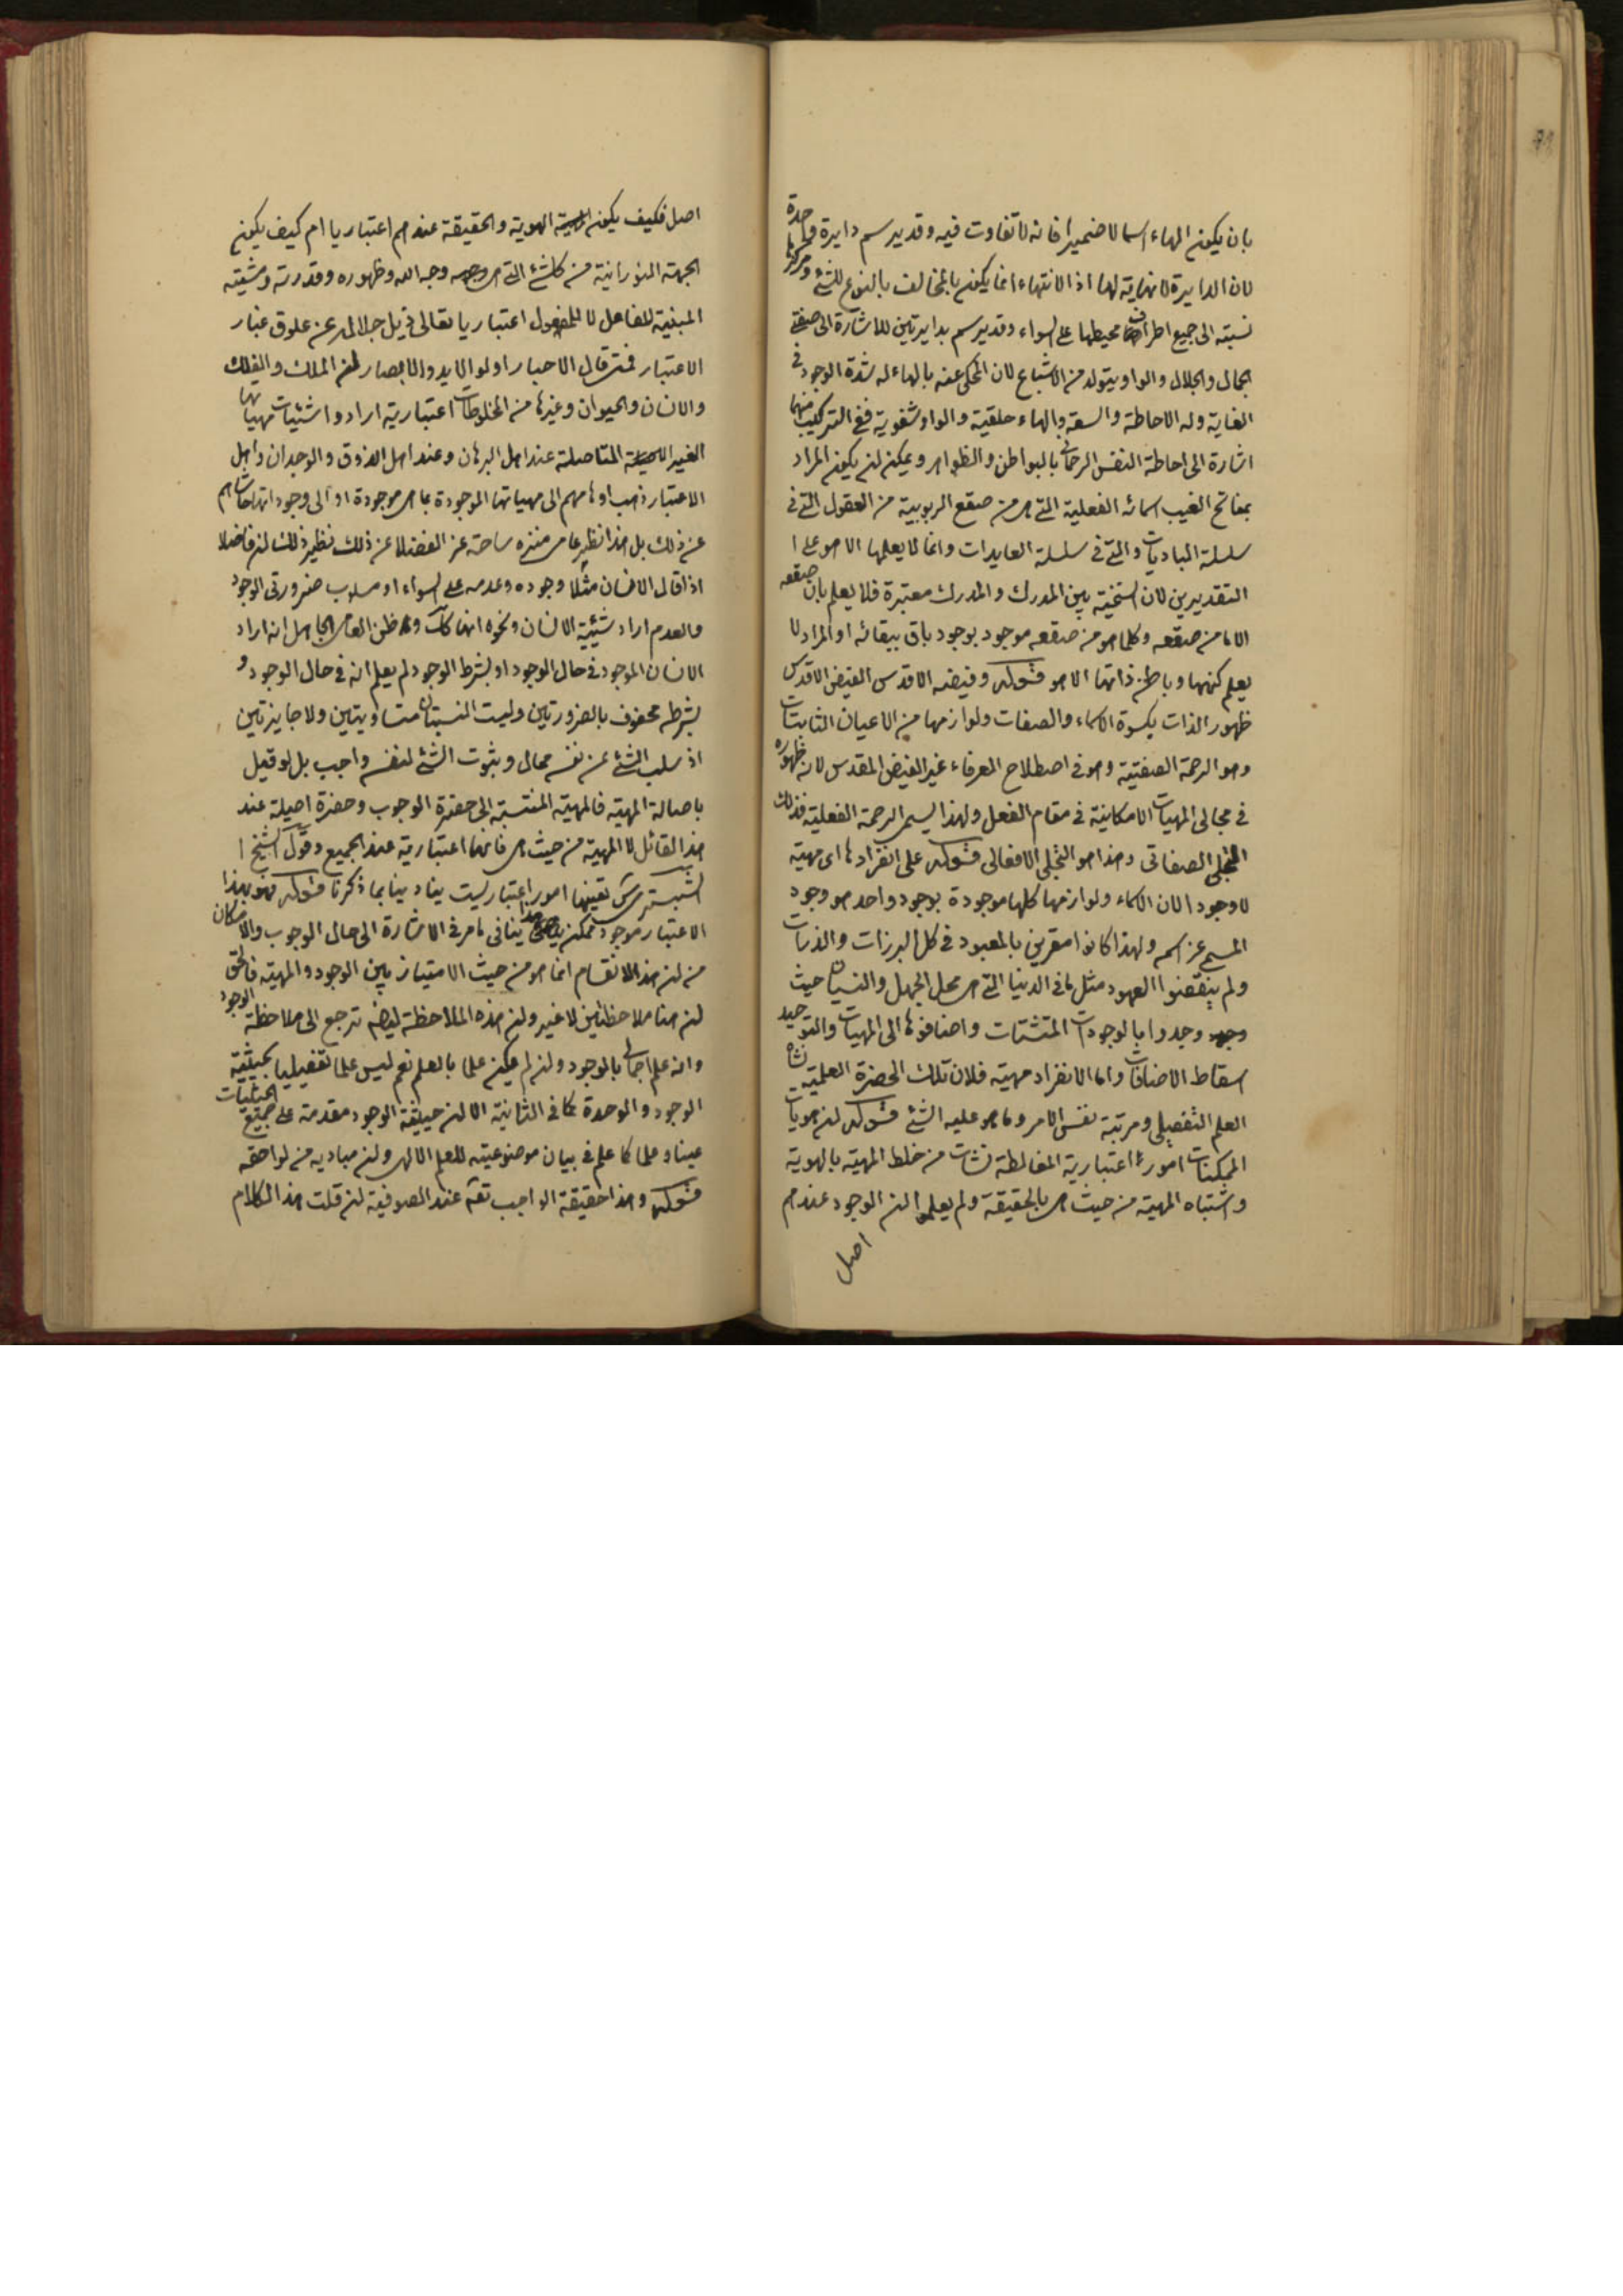 بان يكون الهاء اسما لا ضميرا فانه لا تفاوت فيه وقد يرسم دايرة واحدة
لان الدايرة لا نهاية لها اذ الانتهاء انما يكون بالمخالف بالنوع للشئ ومركزها
نسبته الى جميع اطراف محيطها على السواء وقد يرسم بدايرتين للاشارة الى صفتى
الجمال والجلال والواو يتولد من الاشباع لان المحكى عنه بالهاء له شدة الوجود فى
الغاية وله الاحاطة والسعة والهاء حلقية والواو شفوية ففى التركيب منهما
اشارة الى احاطة النفس الرحمانى بالبواطن والظواهر ويمكن ان يكون المراد
بمفاتح الغيب اسمائه الفعلية التى هى من صقع الربوبية من العقول التى فى
سلسلة الباديات والتى فى سلسلة العايدات وانما لا يعلمها الا هو على ا
التقديرين لان السنخية بين المدرك والمدرك معتبرة فلا يعلم بان صقعه
الا ما من صقعه وكلما هو من صقعه موجود بوجود باق ببقائه او المراد لا
يعلم كنهها وباطن ذاتها الا هو قوله وفيضه الاقدس الفيض الاقدس
ظهور الذات بكسوة الاسماء والصفات ولوازمها من الاعيان الثابتات
وهو الرحمة الصفتية وهو فى اصطلاح العرفاء غير الفيض المقدس لانه ظهوره
فى مجالى المهيات الامكانية فى مقام الفعل ولهذا يسمى الرحمة الفعلية فذلك
التجلى الصفاتى وهذا هو التجلى الافعالى قوله على انفرادها اى مهية
لا وجودا لان الاسماء ولوازمها كلها موجودة بوجود واحد هو وجود
المسمى عز اسمه ولهذا كانوا مقرين بالمعبود فى كل البرزات والذرات
ولم ينقضوا العهود مثل ما فى الدنيا التى هى محل الجهل والنسيان حيث
وجدوا بالوجودات المتشتتات واضافوها الى المهيات والتوحيد
اسقاط الاضافات واما الانفراد مهية فلان تلك الحضرة العلمية نشاة
العلم التفصيلى ومرتبة نفس الامر وما هو عليه الشئ قوله ان هويات
الممكنات امور اعتبارية المغالطة نشات من خلط المهية بالهوية
واشتباه المهية من حيث هى بالحقيقة ولم يعلموا ان الوجود عندهم
اصل
اصل فكيف يكون الهوية والحقيقة عندهم اعتباريا ام كيف يكون
الجهة النورانية من كل شئ التى هى وجه الله وظهوره وقدرته ومشيته
المبنية للفاعل لا للمفعول اعتباريا تعالى ذيل جلاله عن علوق غبار
الاعتبار فمتى قال الاحبار اولو الايد والابصار ان الملك والفلك
والانسان والحيوان وغيرها من المخلوقات اعتبارية ارادوا شيئيات مهياتها
الغير المتاصلة عند اهل البرهان وعند اهل الذوق والوجدان واهل
الاعتبار ذهب اوهامهم الى مهياتها الموجودة بما هى موجودة او الى وجوداتها حاشاهم
عن ذلك بل هذا نظر عامى منزه ساحة عز الفضلا عن ذلك نظير ذلك ان فاضلا
اذا قال الانسان مثلا وجوده وعدمه على السواء او مسلوب ضرورتى الوجود
والعدم اراد شيئية الانسان ونحوه انها كك وظن العامى الجاهل انه اراد
الانسان الموجود فى حال الوجود او بشرط الوجود لم يعلم انه فى حال الوجود و
بشرطه محفوف بالضرورتين وليست النسبتان متساويتين ولا جايزتين
اذ سلب الشئ عن نفسه محال وثبوت الشئ لنفسه واجب بل لو قيل
باصالة المهية فالمهية المنتسبة الى حضرة الوجوب وحضرة اصيلة عند
هذا القائل لا المهية من حيث هى فانها اعتبارية عند الجميع وقول الشيخ ا
الشبسترى تعينها امور اعتباريست ينادينا بما ذكرنا قوله فهو بهذا
الاعتبار موجود ممكن هذا ينافى ما مر فى الاشارة الى حال الوجوب والامكان
من ان هذا الانقسام انما هو من حيث الامتياز بين الوجود والمهية فالحق
ان هنا ملاحظتين لا غير وان هذه الملاحظة ايضا ترجع الى ملاحظة الوجود
وانه علم اجمالى بالوجود وان لم يكن علما بالعلم نعم ليس علما تفصيليا بحيثية
الوجود والوحدة كما فى الثانية الا ان حيثية الوجود مقدمة على جميع الحيثيات
عينا وعلما كما علم فى بيان موضوعيته للعلم الالهى وان مباديه من لواحقه
قوله وهذا حقيقة الواجب تعه عند الصوفية ان قلت هذا الكلام